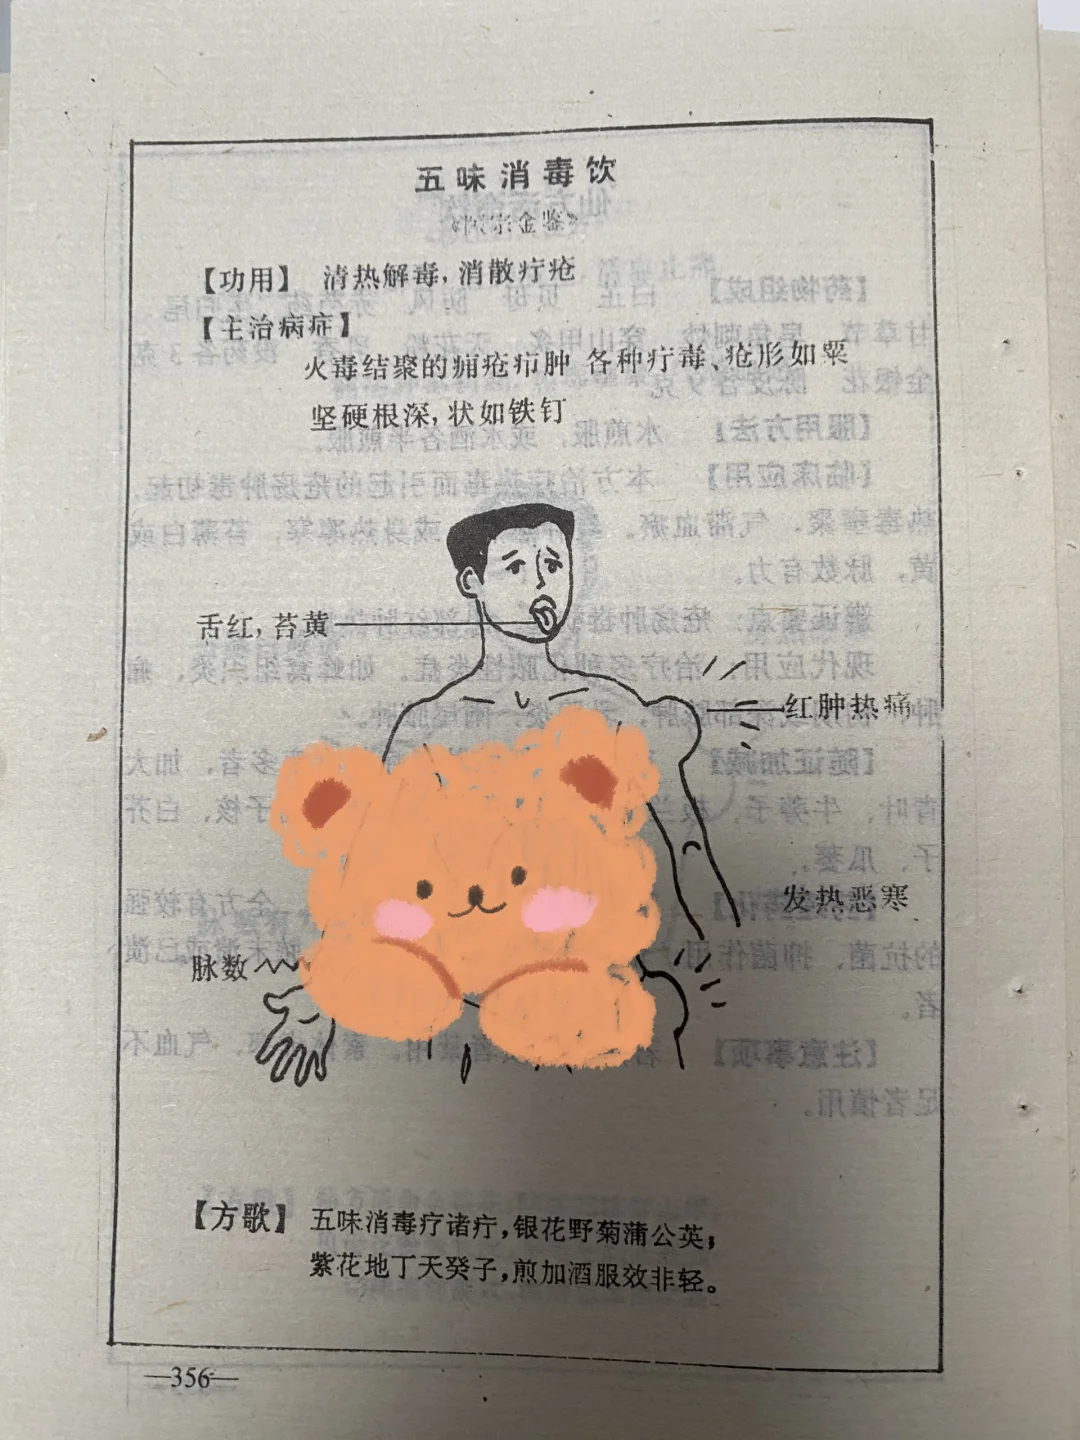 五味消毒饮
《医宗金鉴》
【功用】 清热解毒,消散疔疮
【主治病症】
火毒结聚的痈疮疖肿 各种疔毒、疮形如粟
坚硬根深,状如铁钉
舌红,苔黄
红肿热痛
发热恶寒
脉数
【方歌】 五味消毒疗诸疔,银花野菊蒲公英;
紫花地丁天癸子,煎加酒服效非轻。
—356—